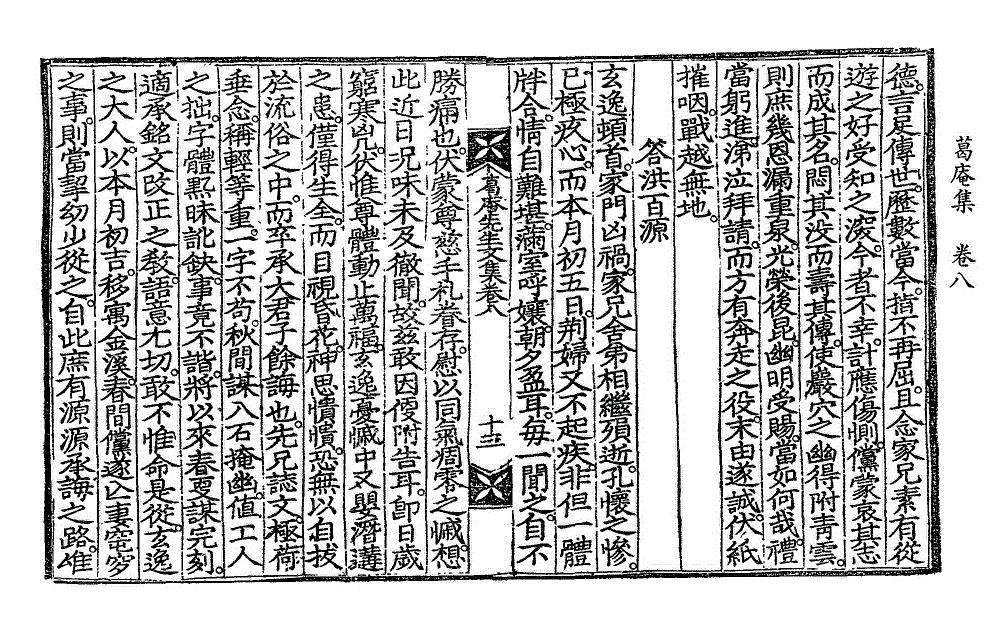 葛庵集　卷八
德。言足傳世。歷數當今。指不再屈。且念家兄素有從
遊之好。受知之深。今者不幸。計應傷惻。儻蒙哀其志
而成其名。悶其没而壽其傳。使巖穴之幽。得附青雲。
則庶幾恩漏重泉。光榮後昆。幽明受賜。當如何哉。禮
當躬進。涕泣拜請。而方有奔走之役。末由遂誠。伏紙
摧咽。戰越無地。
答洪百源
玄逸頓首。家門凶禍。家兄舍弟相繼殞逝。孔懷之慘。
已極疚心。而本月初五日。荊婦又不起疾。非但一體
牉合。情自難堪。滿室呼孃。朝夕盈耳。每一聞之。自不
葛庵先生文集卷八　十三
勝痛也。伏蒙尊慈手札眷存。慰以同氣凋零之慽。想
此近日况味未及徹聞。故玆敢因便附告耳。卽日歲
窮寒凶。伏惟尊體動止萬福。玄逸憂慽中。又嬰潛講
之患。僅得生全。而目視昏花。神思憒憒。恐無以自拔
於流俗之中。而卒承大君子餘誨也。先兄誌文。極荷
垂念。稱輕等重。一字不苟。秋間謀八石掩幽。値工人
之拙。字體黑昧訛缺。事竟不諧。將以來春更謀完刻。
適承銘文改正之敎。語意尤切。敢不惟命是從。玄逸
之大人。以本月初吉。移寓金溪。春間儻遂亾妻窀穸
之事。則當挈幼少從之。自此庶有源源承誨之路。惟